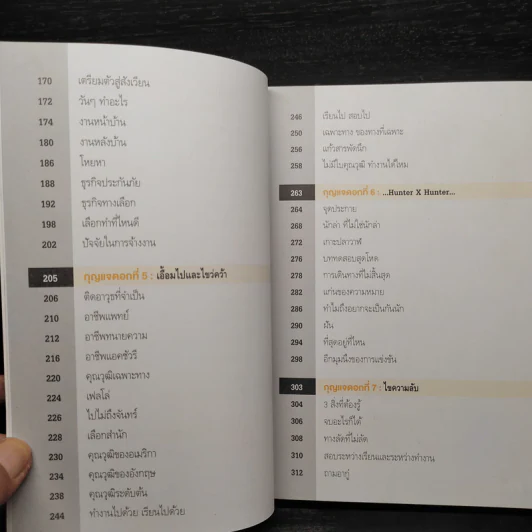 170 เตรียมตัวสู่สังเวียน
172 วันๆ ทำอะไร
174 งานหน้าบ้าน
180 งานหลังบ้าน
186 โหยหา
188 ธุรกิจประกันภัย
192 ธุรกิจทางเลือก
198 เลือกทำที่ไหนดี
202 ปัจจัยในการจ้างงาน
205 กุญแจดอกที่ 5 : เอื้อมไปและไขว่คว้า
206 ติดอาวุธที่จำเป็น
210 อาชีพแพทย์
212 อาชีพทนายความ
216 อาชีพแอคชัวรี
220 คุณวุฒิเฉพาะทาง
224 เฟลโล่
226 ไปไม่ถึงจันทร์
228 เลือกสำนัก
230 คุณวุฒิของอเมริกา
234 คุณวุฒิของอังกฤษ
238 คุณวุฒิระดับต้น
244 ทำงานไปด้วย เรียนไปด้วย
246 เรียนไป สอบไป
250 เฉพาะทาง ของทางที่เฉพาะ
256 แก้วสารพัดนึก
258 ไม่มีใบคุณวุฒิ ทำงานได้ไหม
263 กุญแจดอกที่ 6 : ...Hunter X Hunter...
264 จุดประกาย
268 นักล่า ที่ไม่ใช่นักล่า
272 เกาะปลาวาฬ
276 บททดสอบสุดโหด
278 การเดินทางที่ไม่สิ้นสุด
282 แก่นของความหมาย
286 ทำไมถึงอยากจะเป็นกันนัก
290 มัน
294 ที่สุดอยู่ที่ไหน
298 อีกมุมนึงของการแข่งขัน
303 กุญแจดอกที่ 7 : ไขความลับ
304 3 สิ่งที่ต้องรู้
306 จบอะไรก็ได้
308 ทางลัดที่ไม่ลัด
310 สอบระหว่างเรียนและระหว่างทำงาน
312 ถามอากู๋